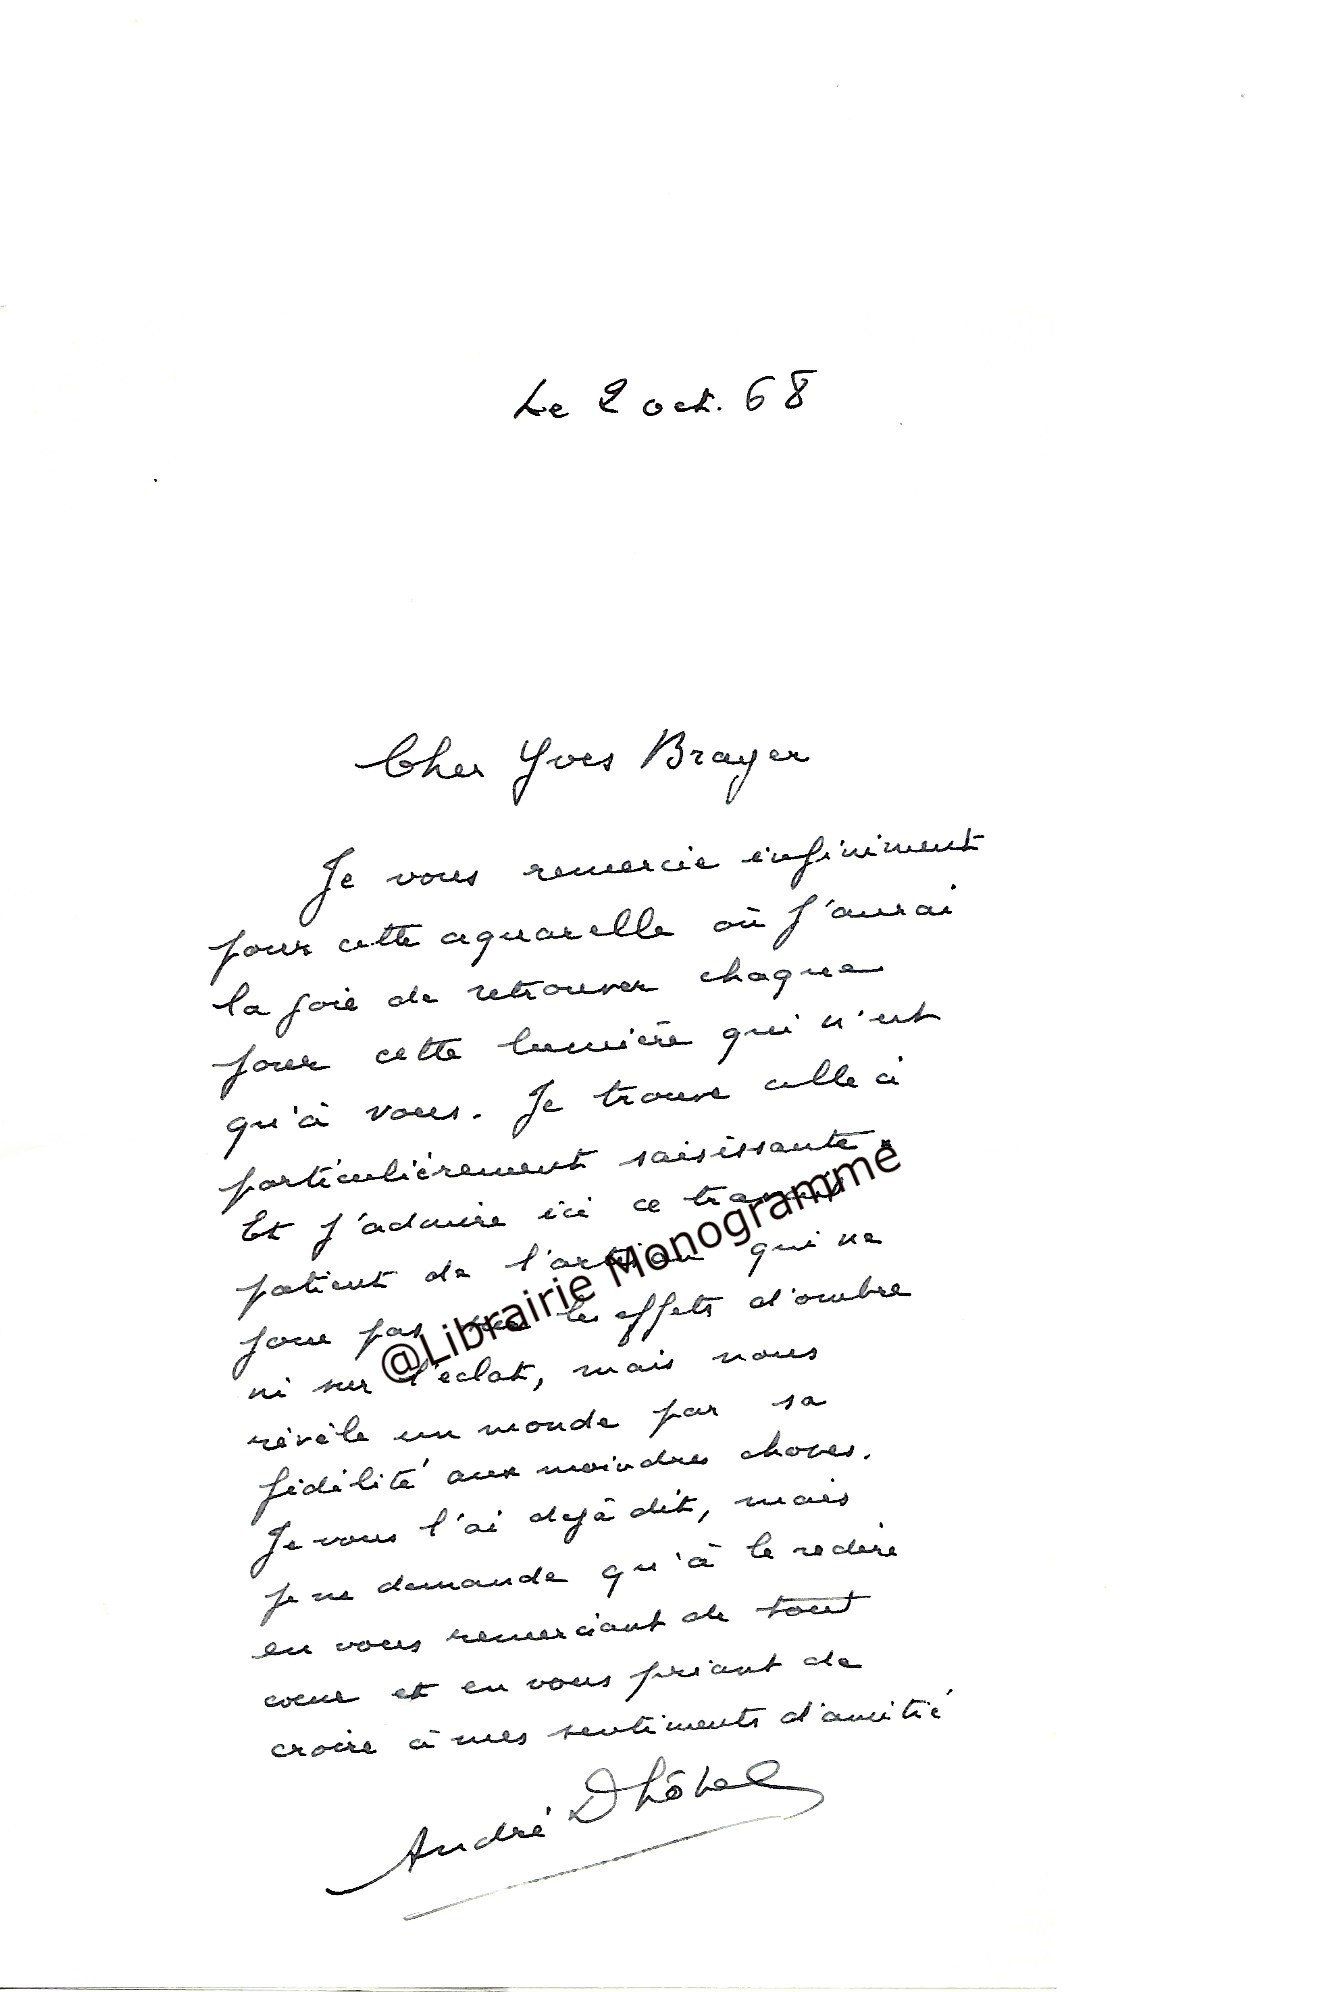 Le 2 oct. 68
Cher Yves Brayer
Je vous remercie infiniment
pour cette aquarelle où j'aurai
la joie de retrouver chaque
jour cette lumière qui n'est
qu'à vous. Je trouve celle ci
particulièrement saisissante.
Et j'admire ici ce travail
patient de l'artisan qui ne
joue pas sur les effets d'ombre
ni sur l'éclat, mais nous
révèle un monde par sa
fidélité aux moindres choses.
Je vous l'ai dejà dit, mais
je ne demande qu'à le redire
en vous remerciant de tout
cœur et en vous priant de
croire à mes sentiments d'amitié
André Dhôtel
@Librairie Monogramme